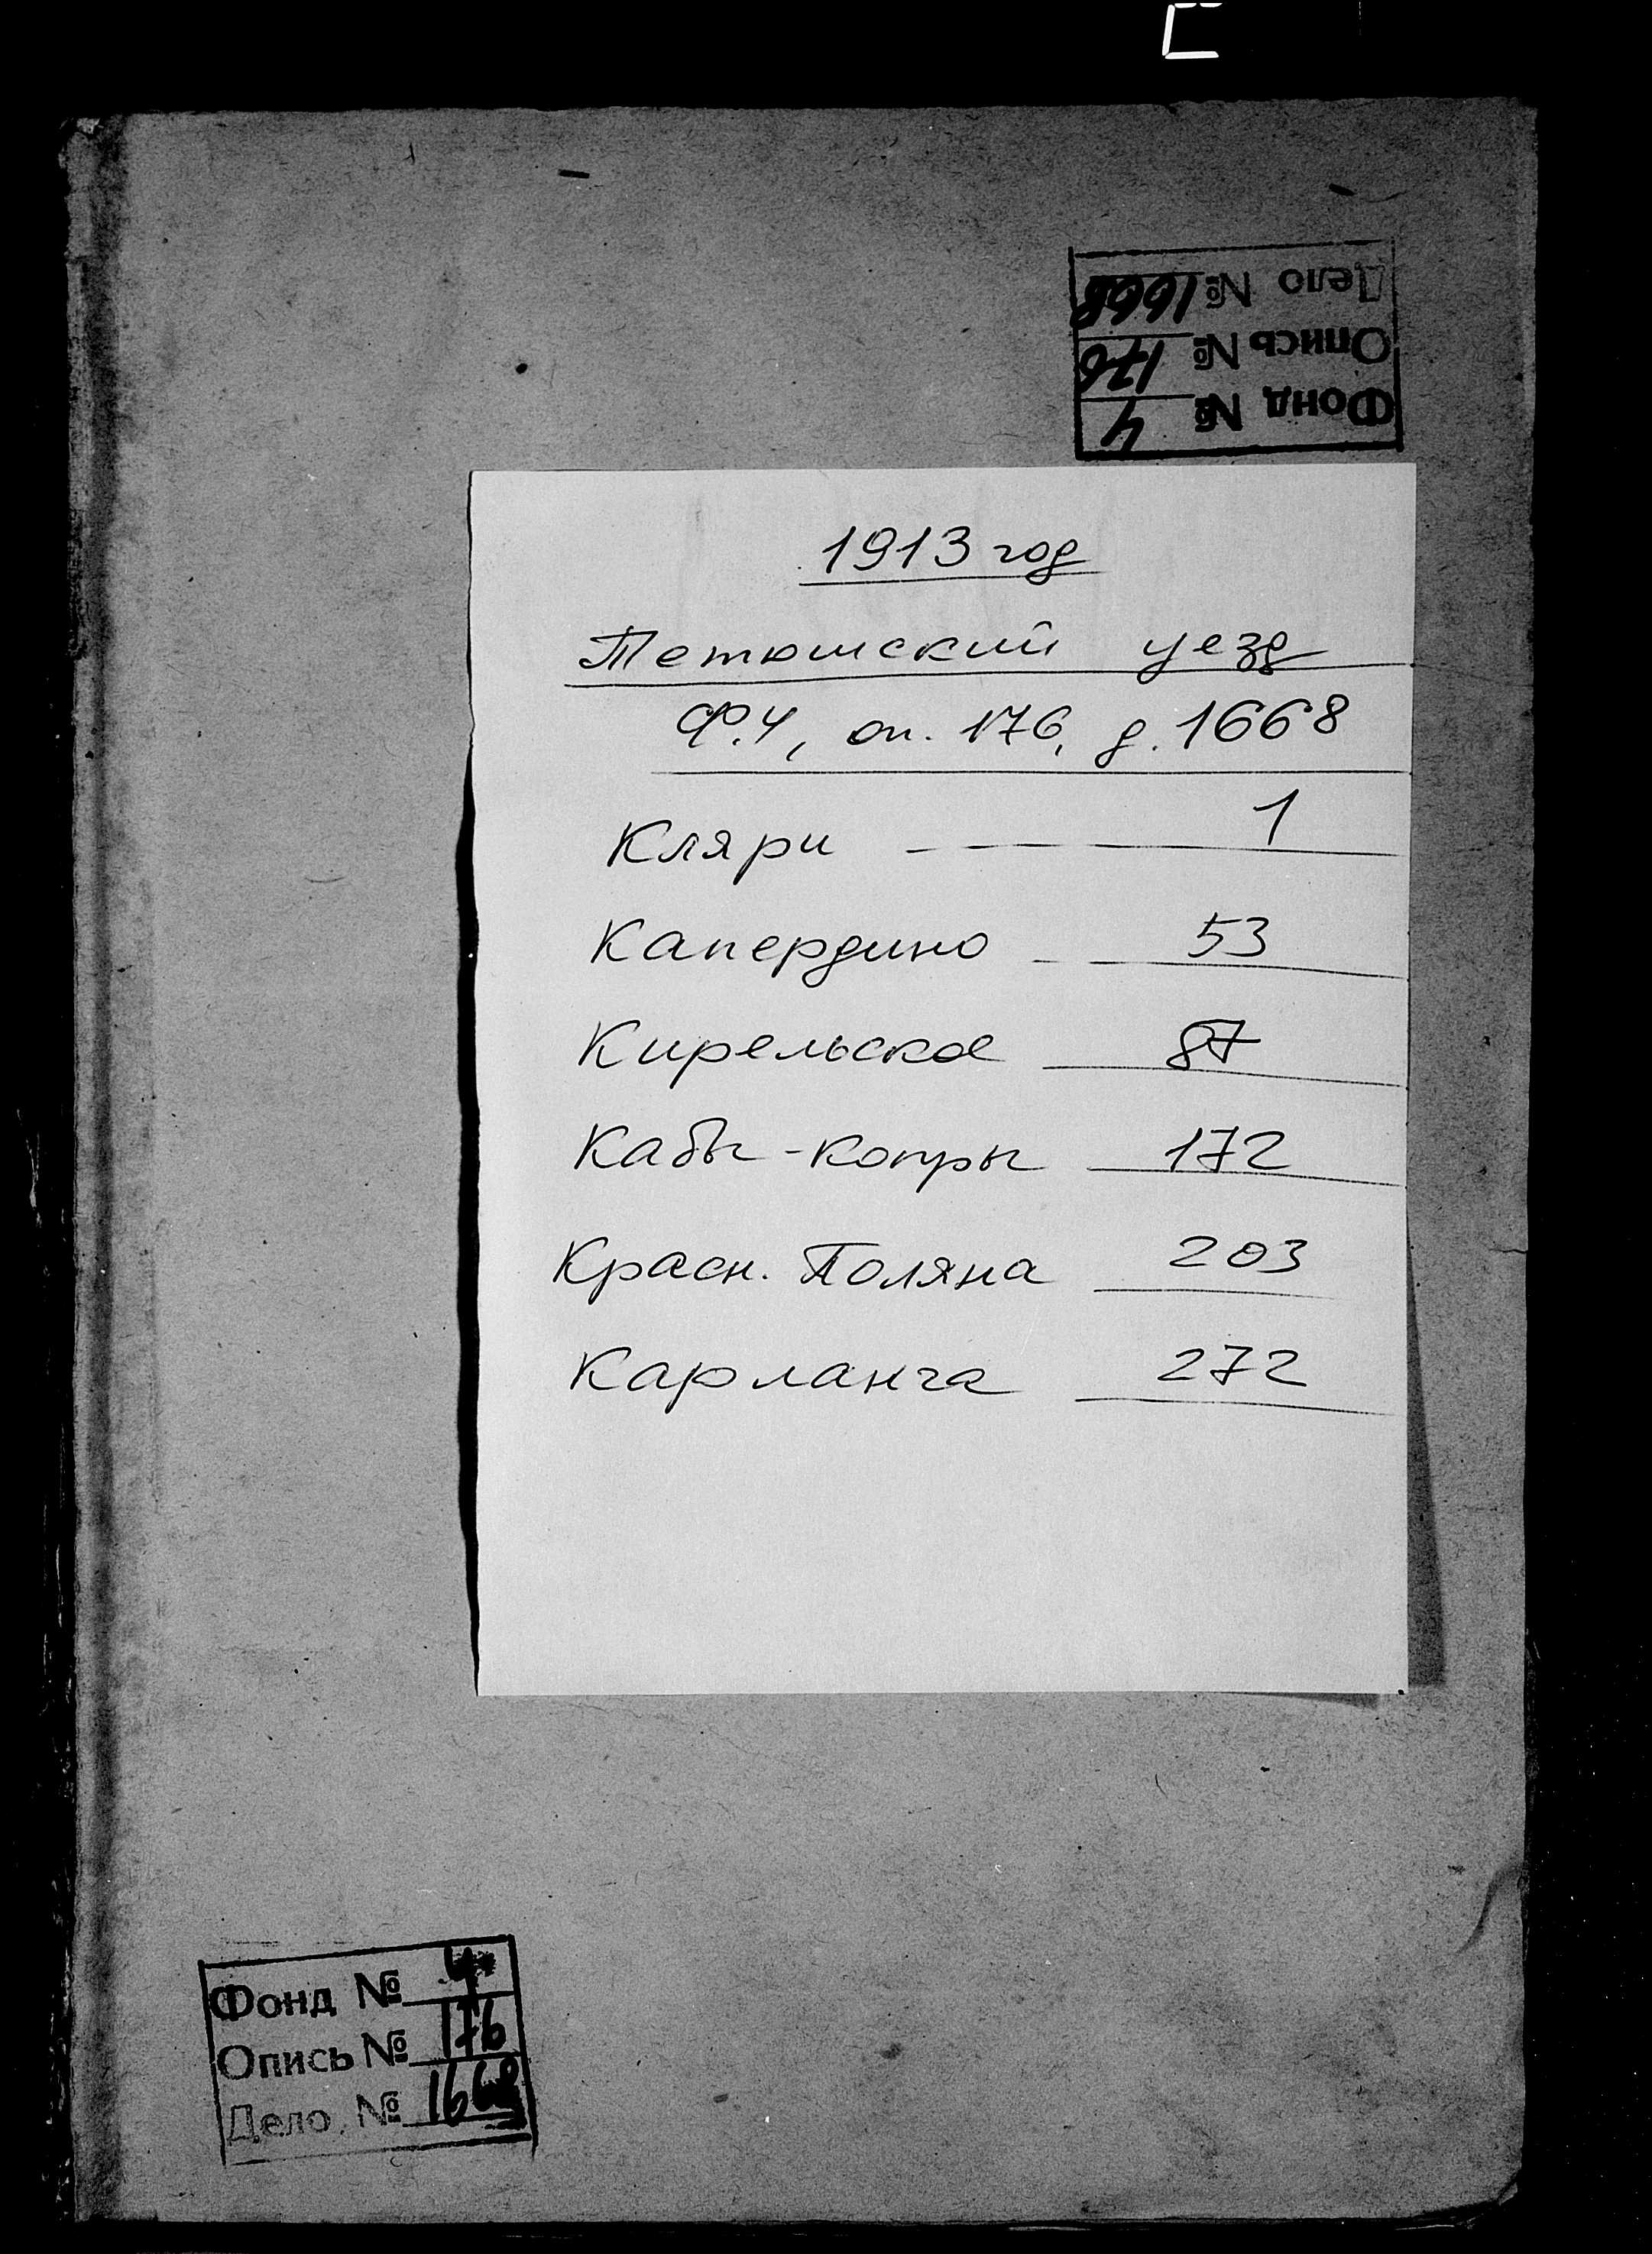 Дело № 1668
Опись № 176
Фонд № 4
1913 год
Тетюшский уезд
Ф.4, оп. 176, д. 1668
Кляри — 1
Капердино — 53
Кирельское 87
Кабы-Копры 172
Красн. Поляна 203
Карланга 272
Фонд № 4
Опись № 176
Дело № 1668